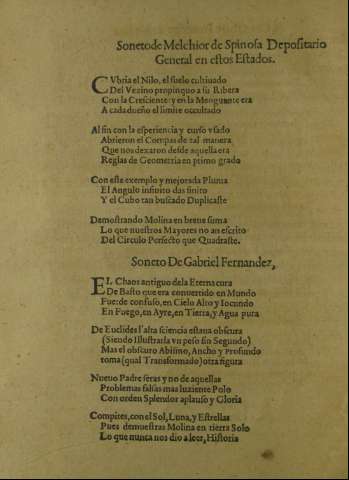 Soneto de Melchior de Spinosa Depositario
General en estos Estados.
CVbria el Nilo, el suelo cultiuado
Del Vezino propinquo a su Ribera
Con la Cresciente: y en la Menguante era
A cada dueño el limite occultado
Al fin con la esperiencia y curso vsado
Abrieron el Compas de tal manera
Que nos dexaron desde aquella era
Reglas de Geometria en primo grado
Con este exemplo y mejorada Pluma
El Angulo infinito das finito
Y el Cubo tan buscado Duplicaste
Demostrando Molina en breue suma
Lo que nuestros Mayores no an escrito
Del Circulo Perfecto que Quadraste.
Soneto De Gabriel Fernandez,
EL Chaos antiguo de la Eterna cura
De Basto que era conuertido en Mundo
Fue: de confuso, en Cielo Alto y Iocundo
En Fuego, en Ayre, en Tierra, y Agua pura
De Euclides l'alta sciencia estaua obscura
(Siendo Illustrarla vn peso sin Segundo)
Mas el obscuro Abismo, Ancho y Profundo
toma (qual Transformado) otra figura
Nueuo Padre seras y no de aquellas
Problemas falsas mas luziente Polo
Con orden Splendor aplauso y Gloria
Compites, con el Sol, Luna, y Estrellas
Pues demuestras Molina en tierra Solo
Lo que nunca nos dio a leer, Historia